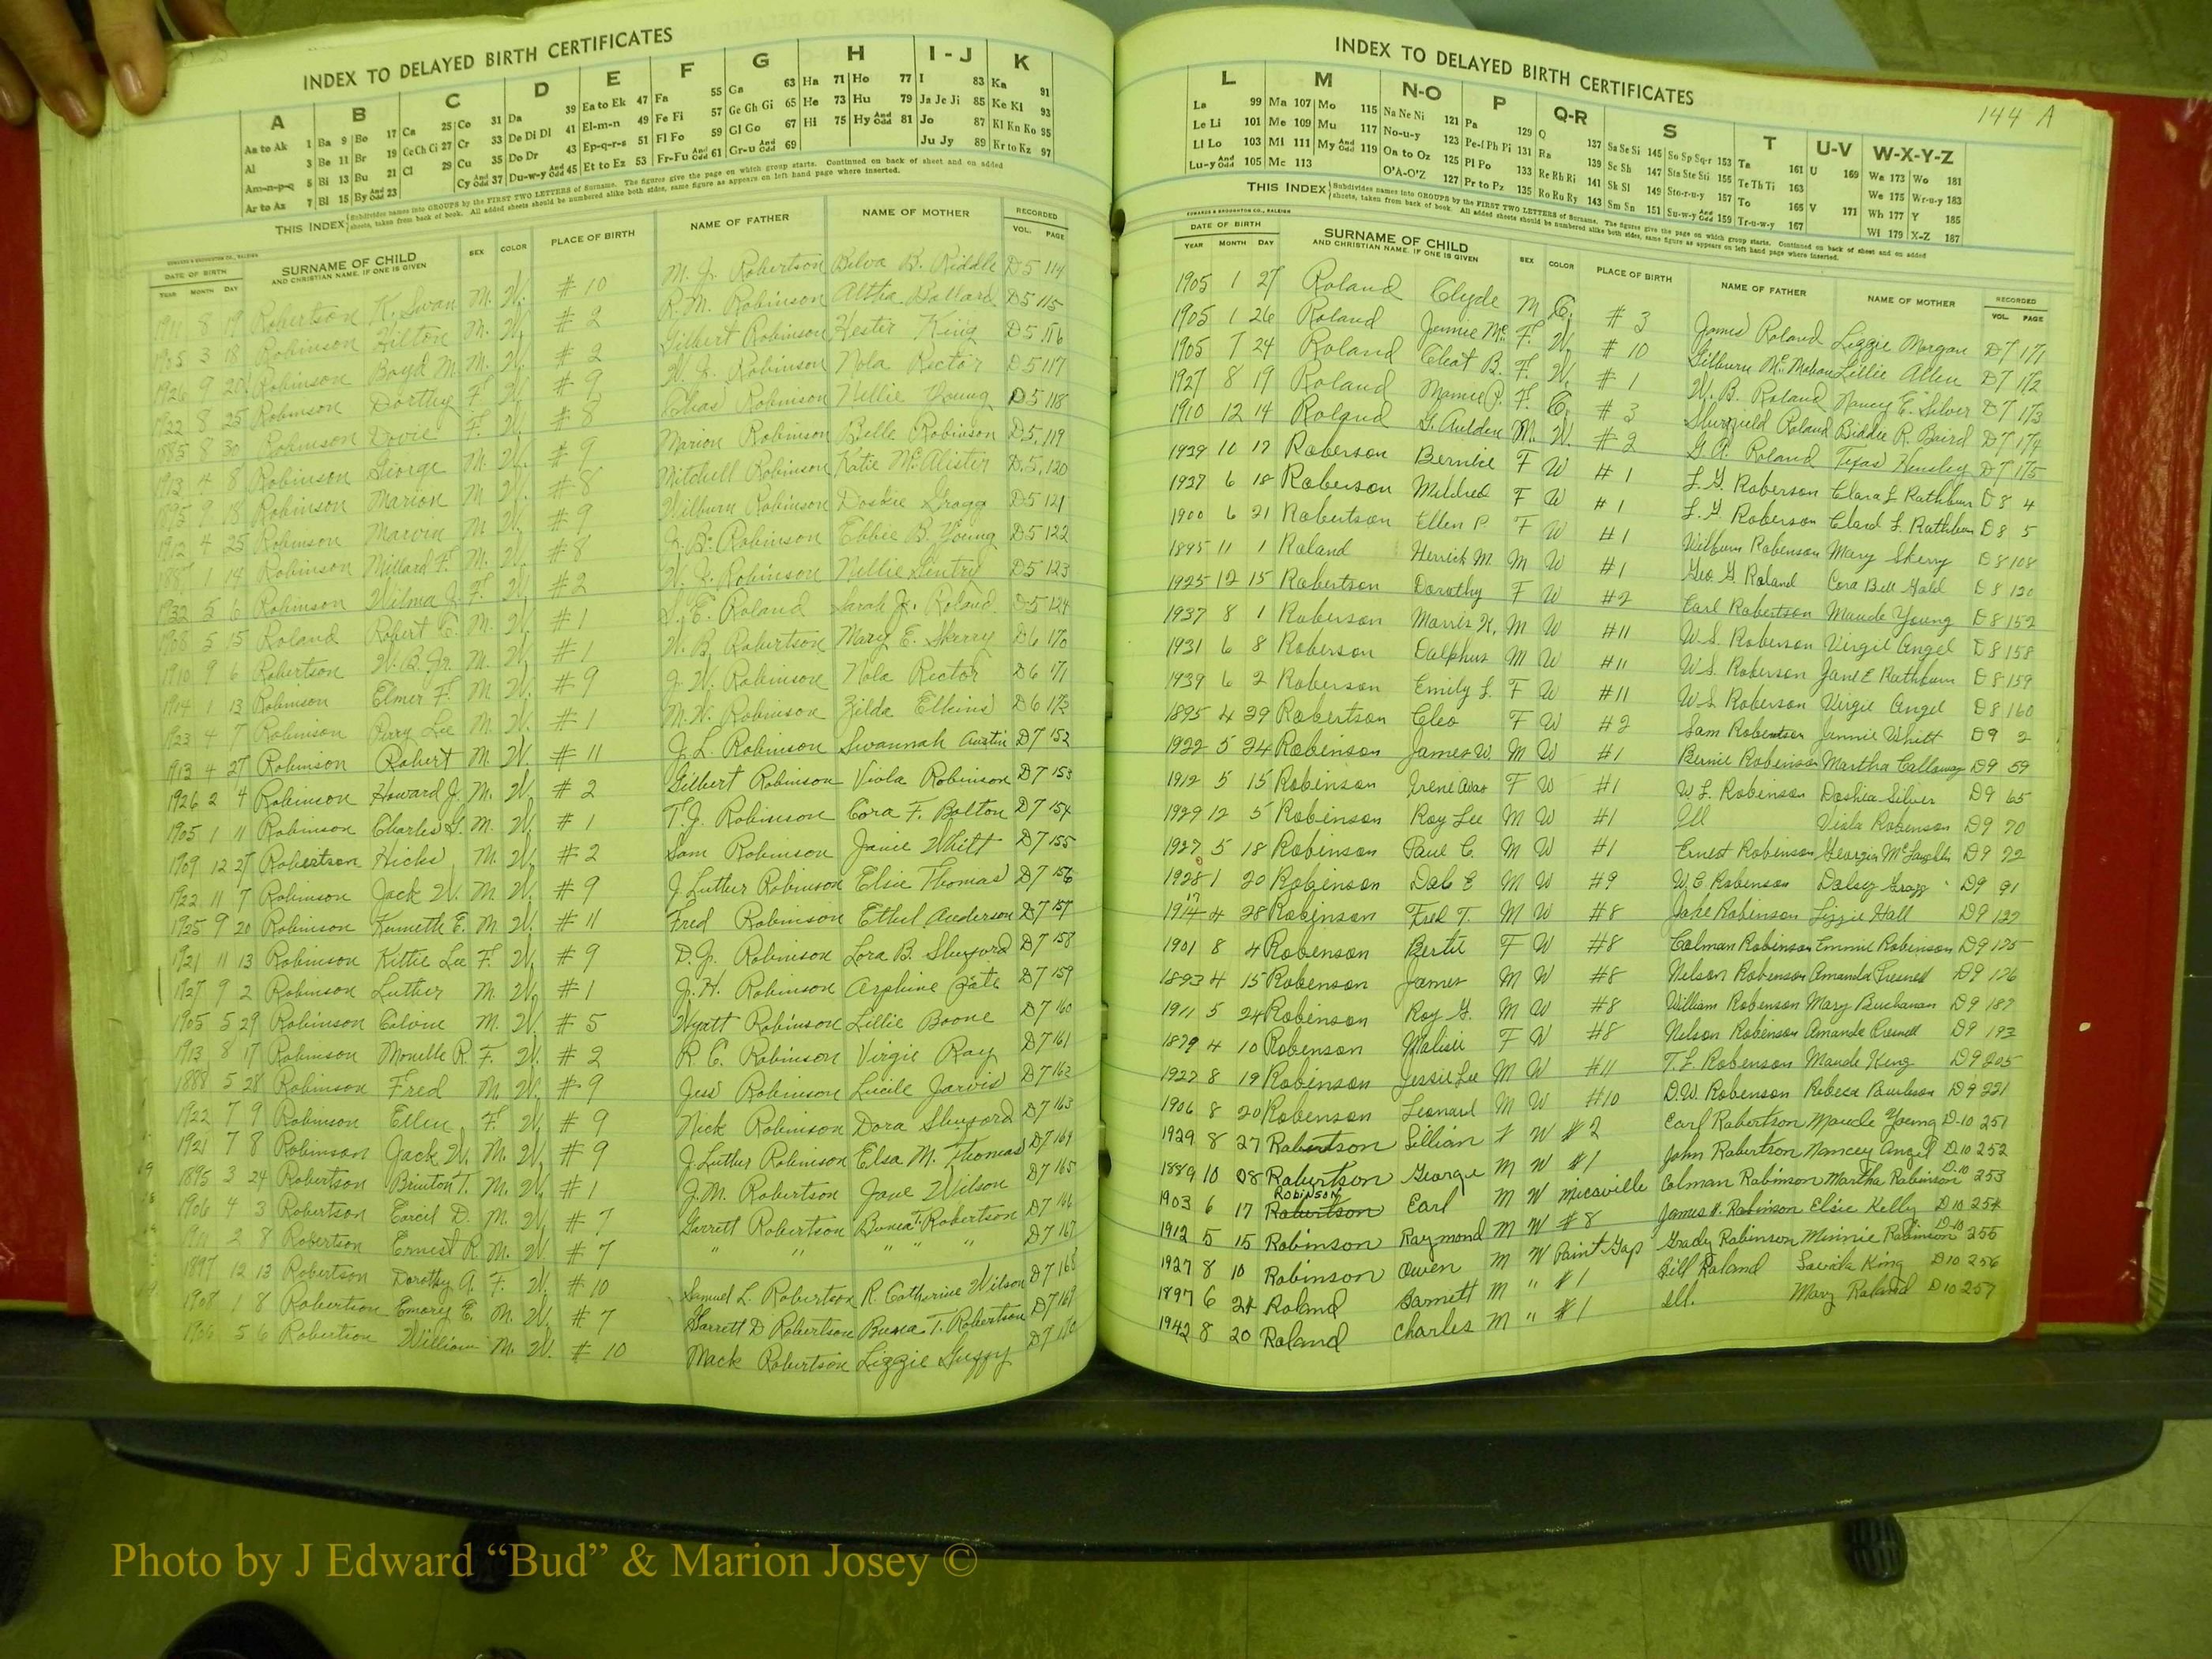 INDEX TO DELAYED BIRTH CERTIFICATES
A B C D E F G H I-J K
Aa to Ak 1 Ba 9 Bo 17 Ca 25 Co 31 Da 39 Ea to Ek 47 Fa 55 Ga 63 Ha 71 Ho 77 I 83 Ka 91
Al 3 Be 11 Br 19 Ce Ch Ci 27 Cr 33 De Di Dl 41 El-m-n 49 Fe Fi 57 Ge Gh Gi 65 He 73 Hu 79 Ja Je Ji 85 Ke Kl 93
Am-n-p-q 5 Bi 13 Bu 21 Cl 29 Cu 35 Do Dr 43 Ep-q-r-s 51 Fl Fo 59 Gl Go 67 Hi 75 Hy And Odd 81 Jo 87 Kl Kn Ko 95
Ar to Az 7 Bl 15 By And Odd 23 Cy And Odd 37 Du-w-y And Odd 45 Et to Ez 53 Fr-Fu And Odd 61 Gr-u And Odd 69 Ju Jy 89 Kr to Kz 97
THIS INDEX Subdivides names into GROUPS by the FIRST TWO LETTERS of Surname. The figures give the page on which group starts. Continued on back of sheet and on added
sheets, taken from back of book. All added sheets should be numbered alike both sides, same figure as appears on left hand page where inserted.
DATE OF BIRTH YEAR MONTH DAY SURNAME OF CHILD AND CHRISTIAN NAME, IF ONE IS GIVEN SEX COLOR PLACE OF BIRTH NAME OF FATHER NAME OF MOTHER RECORDED VOL. PAGE
1911 8 19 Robertson K. Swan M. W. #10 M. J. Robertson Biddle D5 114
1905 3 18 Robinson Hilton M. W. #2 R. M. Robinson Ballard D5 115
1926 9 20 Robinson Boyd M. M. W. #2 Gilbert Robinson Hester King D5 116
1922 8 25 Robinson Dorthy F. W. #9 Robinson Nola Rector D5 117
1885 8 30 Robinson Dovie F. W. #8 Chas Robinson Nellie Young D5 118
1913 4 8 Robinson George M. W. #9 Marion Robinson Belle Robinson D5 119
1895 9 18 Robinson Marion M W. #8 Mitchell Robinson Katie McAlister D5 120
1912 4 25 Robinson Marvin M W. #9 Wilburn Robinson Gragg D5 121
1887 1 14 Robinson Millard F. M. W. #8 Robinson Ebbie B. Young D5 122
1932 5 6 Robinson Wilma J. F. W. #2 Robinson Nellie Gentry D5 123
5 15 Roland Robert C. M. W. #1 S. E. Roland Sarah Jr. Roland D5 124
1910 9 6 Robertson W. B. Jr. M. W. #1 W. B. Robertson Mary E. Skerry D6 170
1904 1 13 Robinson Elmer F. M W. #9 J. W. Robinson Nola Rector D6 171
1923 4 7 Robinson Perry Lee M. W. #1 M. W. Robinson Zilda Elkins D6 173
1913 4 27 Robinson Robert M. W. #11 J. L. Robinson Savannah Austin D7 152
1926 2 4 Robinson Howard J. M. W. #2 Gilbert Robinson Viola Robinson D7 153
1905 1 11 Robinson Charles G. M. W. #1 T. J. Robinson Cora F. Bolton D7 154
1909 12 27 Robertson Hicks M. W. #2 Sam Robinson Janie Whitt D7 155
1922 11 7 Robinson Jack W. M. W. #9 J. Luther Robinson Elsie Thomas D7 156
1925 9 20 Robinson Kenneth E. M. W. #11 Fred Robinson Ethel Anderson D7 157
1921 11 13 Robinson Kittie Lee F. W. #9 D. J. Robinson Lora B. Shuford D7 158
1927 9 2 Robinson Luther M. W. #1 J. H. Robinson Arphine Pate D7 159
1905 5 29 Robinson M. W. #5 Wyatt Robinson Lillie Boone D7 160
1913 8 17 Robinson Monelle R. F. W. #2 R. C. Robinson Virgie Ray D7 161
1888 5 28 Robinson Fred M. W. #9 Jess Robinson Lucile Jarvis D7 162
1922 7 9 Robinson Ellen F. W. #9 Nick Robinson Dora Shuford D7 163
1921 7 8 Robinson Jack W. M. W. #9 J. Luther Robinson Elsa M. Thomas D7 164
1895 3 24 Robertson Brinton T. M. W. #1 J. M. Robertson Jane Wilson D7 165
1906 4 3 Robertson Corcil D. M. W. #7 Garrett Robertson Bunea T. Robertson D7 166
1911 2 8 Robertson Ernest R. M. W. #7 " " " " D7 167
1897 12 13 Robertson Dorothy A. F. W. #10 Samuel L. Robertson R. Catherine Wilson D7 168
1908 1 8 Robertson Emory E. M. W. #7 Garrett D Robertson Bunea T. Robertson D7 169
5 6 Robertson William M. W. #10 Mack Robertson Lizzie Guffy D7 170
INDEX TO DELAYED BIRTH CERTIFICATES
144 A
L M N-O P Q-R S T U-V W-X-Y-Z
La 99 Ma 107 Mo 115 Na Ne Ni 121 Pa 129 Q 137 Sa Se Si 145 So Sp Sq-r 153 Ta 161 U 169 Wa 173 Wo 181
Le Li 101 Me 109 Mu 117 No-u-y 123 Pe-f Ph Pi 131 Ra 139 Sc Sh 147 Sta Ste Sti 155 Te Th Ti 163 We 175 Wr-u-y 183
Ll Lo 103 Mi 111 My And Odd 119 On to Oz 125 Pl Po 133 Re Rh Ri 141 Sk Sl 149 Sto-r-u-y 157 To 165 V 171 Wh 177 Y 185
Lu-y And Odd 105 Mc 113 O'A-O'Z 127 Pr to Pz 135 Ro Ru Ry 143 Sm Sn 151 Su-w-y And Odd 159 Tr-u-w-y 167 Wi 179 X-Z 187
THIS INDEX Subdivides names into GROUPS by the FIRST TWO LETTERS of Surname. The figures give the page on which group starts. Continued on back of sheet and on added
sheets, taken from back of book. All added sheets should be numbered alike both sides, same figure as appears on left hand page where inserted.
EDWARDS & BROUGHTON CO., RALEIGH
DATE OF BIRTH YEAR MONTH DAY SURNAME OF CHILD AND CHRISTIAN NAME, IF ONE IS GIVEN SEX COLOR PLACE OF BIRTH NAME OF FATHER NAME OF MOTHER RECORDED VOL. PAGE
1905 1 27 Roland Clyde M C. #3 James Roland Lizzie Morgan D7 171
1905 1 26 Roland Jennie Mc. F. W. #10 Gilburn McMahan Lillie Allen D7 172
1905 7 24 Roland Cleat B. F. W. #1 W. B. Roland Nancy E. Silver D7 173
1927 8 19 Roland Mamie P. F. C. #3 Roland Biddie R. Baird D7 174
1910 12 14 Roland G. Aulden M. W. #2 G. A. Roland Texas Hensley D7 175
1939 10 17 Roberson Bernice F W #1 L. G. Roberson Clara L Rathbun D8 4
1937 6 18 Roberson Mildred F W #1 L. G. Roberson Clara L. Rathbun D8 5
1900 6 21 Robertson Ellen P. F W #1 Wilburn Robinson Mary Skerry D8 108
1895 11 1 Roland Herrick M. M W #1 Geo. G. Roland Cora Bell D8 120
1925 12 15 Robertson Dorothy F W #2 Earl Robertson Maude Young D8 152
1937 8 1 Roberson Morris K. M W #11 W. S. Roberson Virgil Angel D8 158
1931 6 8 Roberson Dalphus M W #11 W. S. Roberson Jane E Rathburn D8 159
1939 6 2 Roberson Emily L. F W #11 W. S. Roberson Virgie Angel D8 160
1895 4 29 Robertson Cleo F W #2 Sam Robertson Jennie Whitt D9 2
1922 5 24 Robinson James W. M W #1 Bernie Robinson Martha Calloway D9 59
1912 5 15 Robinson Irene F W #1 W. L. Robinson Doshia Silver D9 65
1929 12 5 Robinson Roy Lee M W #1 Ill Viola Robinson D9 70
1927 5 18 Robinson Paul C. M W #1 Ernest Robinson Georgia McLaughlin D9 72
1928 1 20 Robinson Dale E M W #9 W. C. Robinson Dolsey Gragg D9 91
1914 17 4 28 Robinson Fred T. M W #8 Jake Robinson Lizzie Hall D9 122
1901 8 4 Robinson Bertie F W #8 Colman Robinson Emmie Robinson D9 125
1893 4 15 Robinson James M W #8 Nelson Robinson Amanda Presnell D9 126
1911 5 24 Robinson Roy G. M W #8 William Robinson Mary Buchanan D9 187
1879 4 10 Robinson Malisie F W #8 Nelson Robinson Amanda Presnell D9 193
1927 8 19 Robinson Jessie Lee M W #11 T. L. Robinson Maude King D9 205
1906 8 20 Robinson Leonard M W #10 D. W. Robinson Rebeca Burleson D9 221
1929 8 27 Robertson Lillian F W #2 Earl Robertson Maude Young D-10 251
1889 10 08 Robertson George M W #1 John Robertson Nancy Angel D-10 252
1903 6 17 Robertson Robinson Earl M W Micaville Colman Robinson Martha Robinson D-10 253
1912 5 15 Robinson Raymond M W #8 James H. Robinson Elsie Kelly D-10 254
1927 8 10 Robinson Owen M W Paint Gap Grady Robinson Minnie Robinson D-10 255
1897 6 24 Roland Garnett M " #1 Bill Roland King D10 256
1942 8 20 Roland Charles M " #1 Ill. Mary Roland D10 257
Photo by J Edward “Bud” & Marion Josey ©